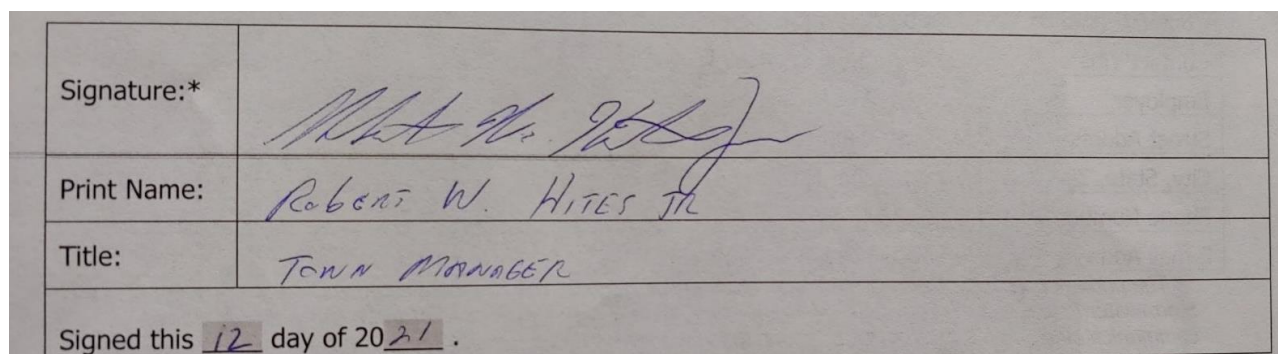 Signature:*
Print Name: Robert W. Hites JR
Title: Town Manager
Signed this 12 day of 2021 .